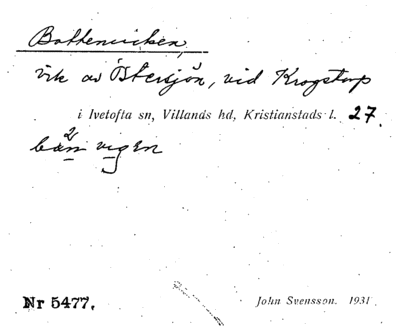 Bottenviken,
vik av Östersjön, vid Krogstorp
i Ivetofta sn, Villands hd, Kristianstads l. 27.
Nr 5477.
John Svensson. 1931